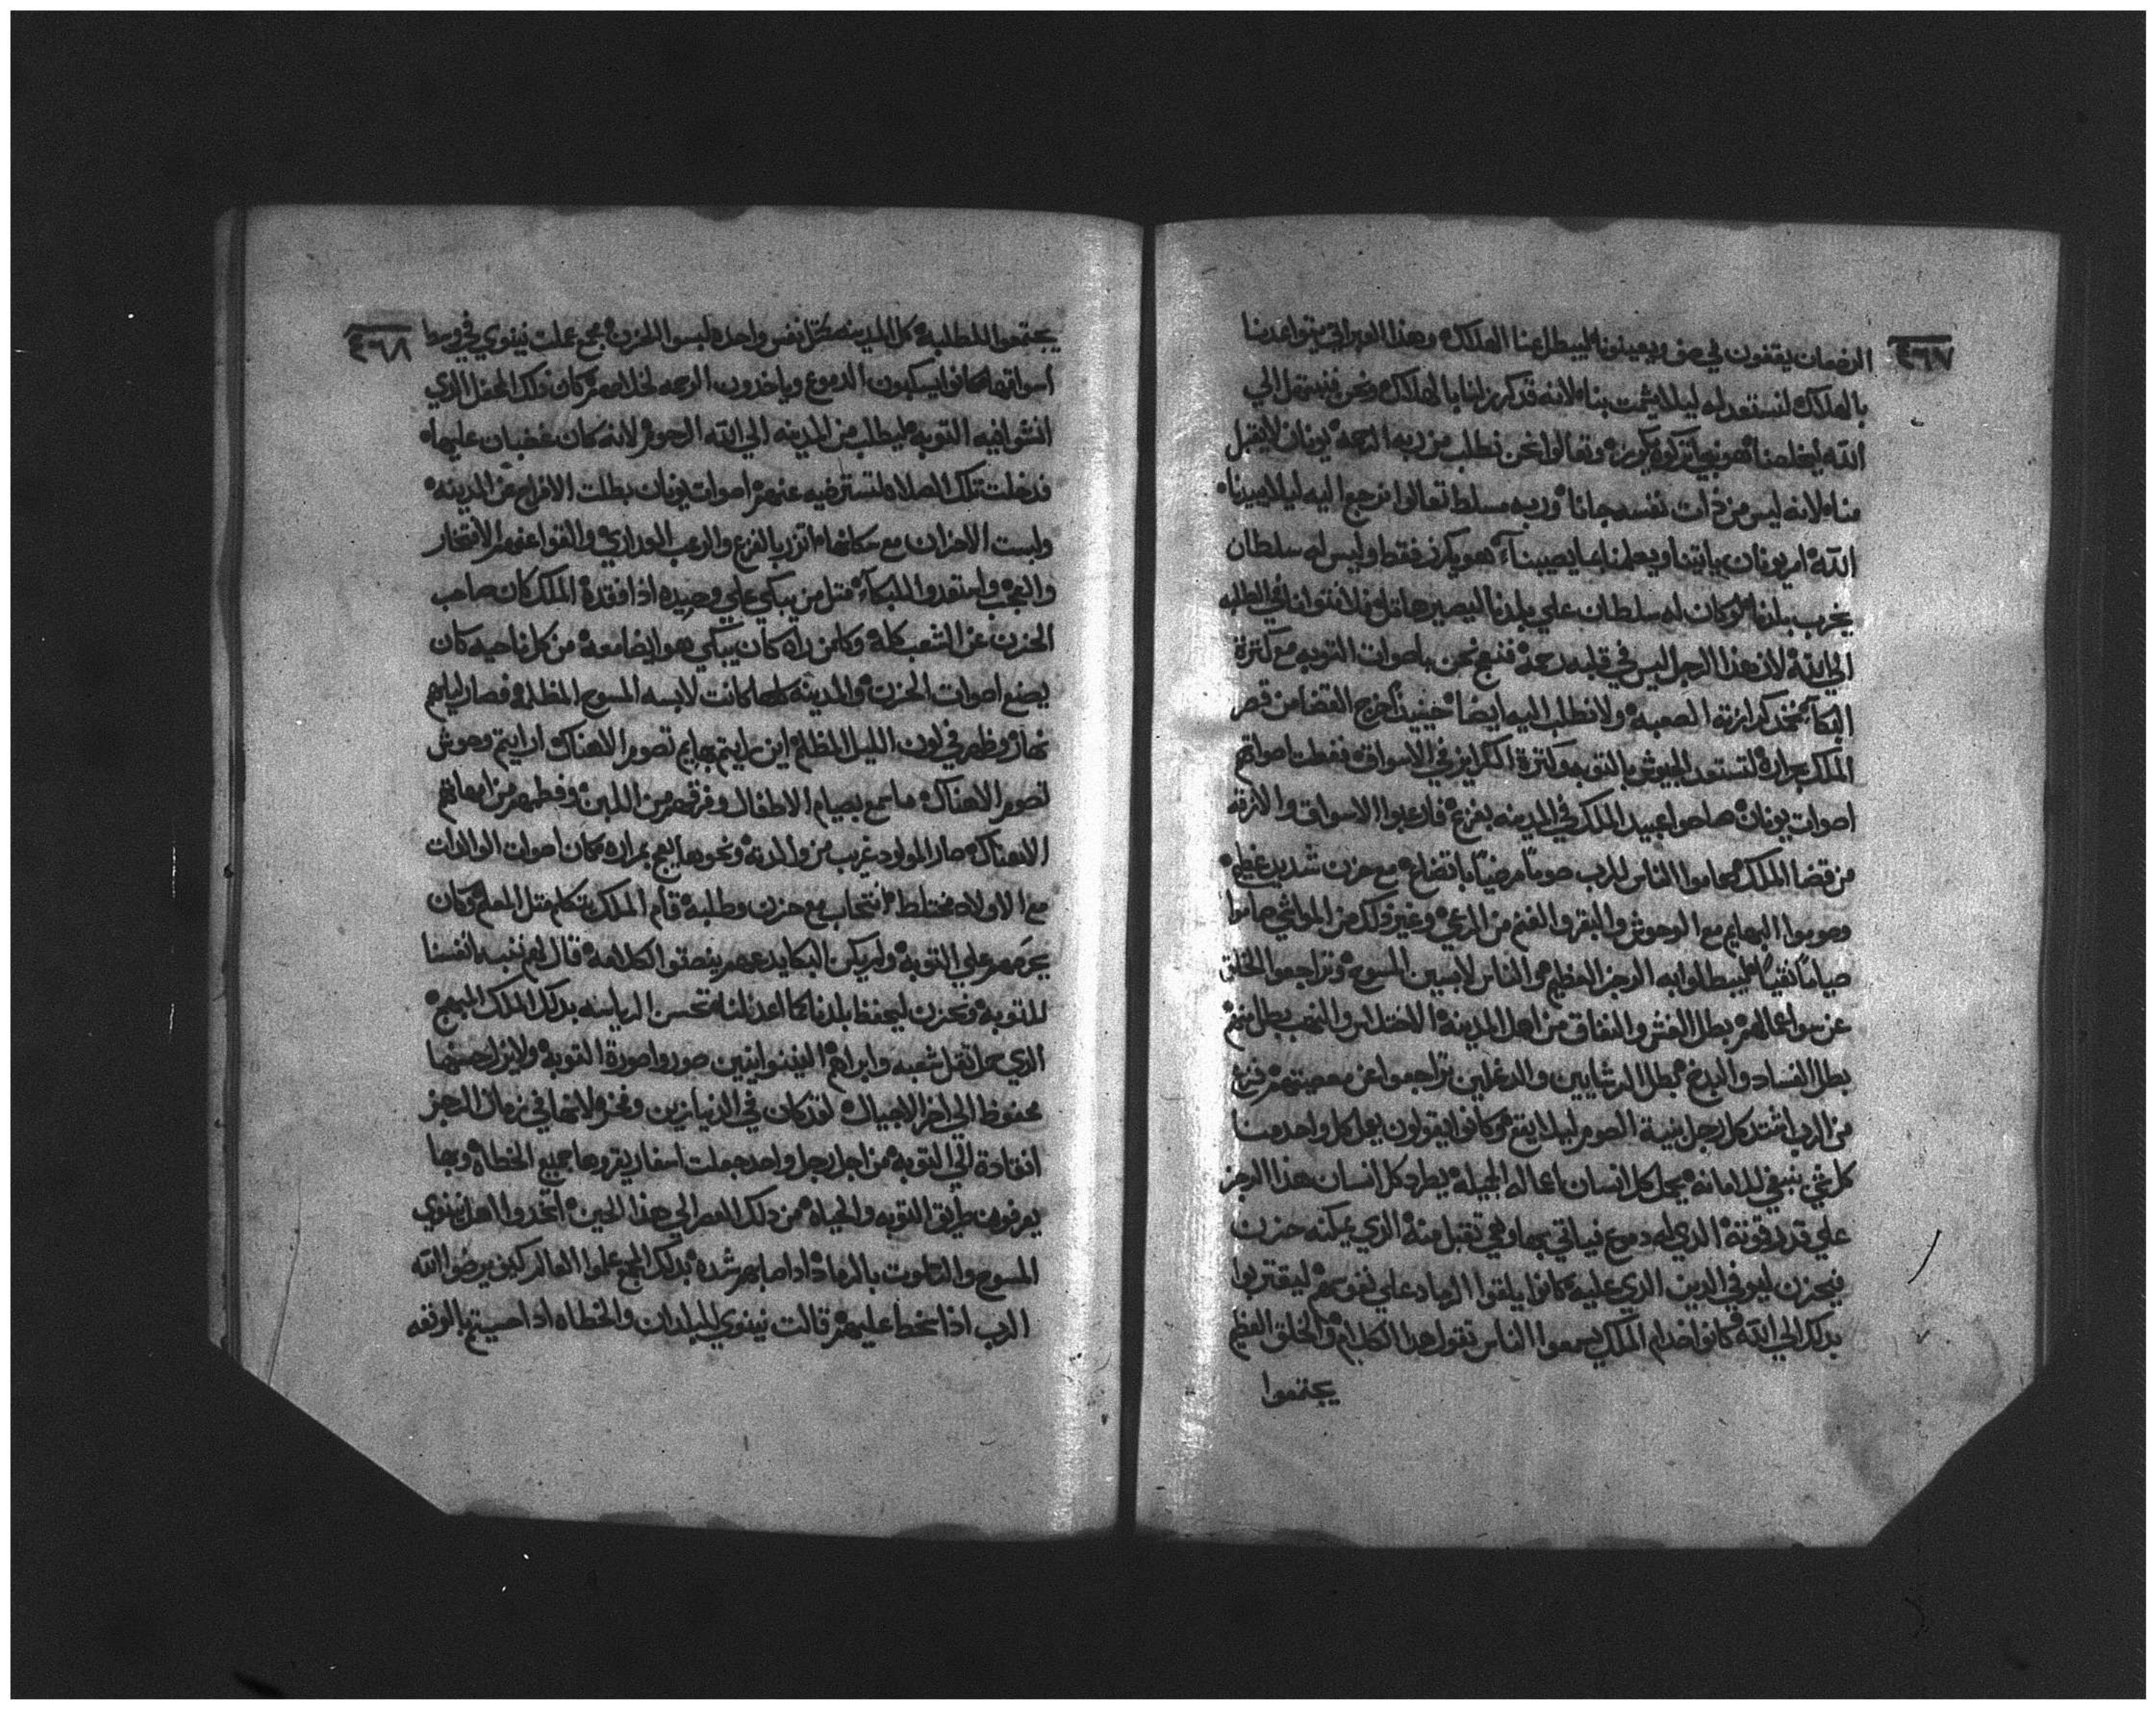 ٤٦٧
الرضعان يقفون في صف ويعينونا ليبطل عنا الهلاك وهذا العبراني يتواعدنا
بالهلاك لنستعد له ليلا يشمت بنا لانه قد كرز لنا بالهلاك ونحن نبتهل الي
الله ليخلصنا وتعالوا نحن نطلب من ربه الرحمه يونان لا يقبل
منا لانه ليس من ذات نفسه جانا وربه مسلط تعالوا نرجع اليه ليلا يبيدنا
الله امر يونان ياتينا ويعلمنا بما يصيبنا هو يكرز فقط وليس له سلطان
يخرب بلدنا لو كان له سلطان علي بلدنا فلا نتوانا في الطلبه
لان هذا الرجل ليس في قلبه رحمه نحن باصوات التوبه مع كترة
البكا الصعبه ولا نطلب اليه ايضا حينيذ اخرج القضا من قصر
الملك بمراره لتستعد الجيوش بالتوبه وكترة الكرايز في الاسواق اصواتهم
اصوات يونان صاحوا عبيد الملك في المدينه بفزع فارعبوا الاسواق والازقه
من قضا الملك صاموا الناس للرب صوما مرضيا باتضاع مع حزن شديد عظيم
وصوموا البهايم مع الوحوش والبقر والغنم من الرعي وغير ذلك من المواشي صاموا
صياما نقيا ليبطلوا به الرجز العظيم والناس لابسين المسوح وتراجعوا الخلق
عن سوا اعمالهم بطل الغش والنفاق من اهل المدينه الاختلاس والنهب بطل منهم
بطل الفساد والبدخ بطل المرتشايين والدغلين تراجعوا عن معصيتهم فزع
من الرب اشتد كل رجل بنية الصوم ليلا يقع وكانوا يقولون يعمل كل واحد منا
كل شي ينبغي للامانه يحمل كل انسان اعماله الجميله يطرد كل انسان هذا الرجز
علي قدر قوته الذي له دموع فياتي بها وهي تقبل منه الذي يمكنه حزن
فيحزن ليوفي الدين الذي عليه كانوا يلقوا الرماد علي نفوسهم ليقتربوا
بدلك الي الله كانوا خدام الملك يسمعوا الناس تقول هدا الكلام والخلق العظيم
يجتمعوا
٤٦٨
يجتمعوا للطلبه كل المدينه متل نفس واحده لبسوا الحزن مجمع عملت نينوي في وسط
اسواقها كانوا يسكبون الدموع وياخدون الرحمه لخلاصهم كان دلك المحفل الذي
انشوا فيه التوبه ليطلب من المدينه الي الله الرحوم لانه كان غضبان عليها
فدخلت تلك الصلاه لتسترضيه عنهم اصوات يونان بطلت الافراح عن المدينه
ولبست الاحزان مع سكانها اتزر بالفزع والرعب العداري والقوا عنهم الافتخار
والعجب واستعدوا للبكا متل من يبكي علي وحيده اذا فقده الملك كان صاحب
الحزن عن الشعب كله وكلمن راه كان يبكي هو ايضا معه من كل ناحيه كان
يصنع اصوات الحزن والمدينه كلها كانت لابسه المسوح المظلمه فصار ليلهم
نهار وظهر في لون الليل المظلم اين رايتم بهايم تصوم الا هناك او رايتم وحوش
تصوم الا هناك ما سمع بصيام الاطفال وفرقهم من اللبن وفطمهم من امهاتهم
الا هناك صار المولود غريب من والدته بمراره فكان اصوات الوالدات
مع الاولاد مختلط انتحاب مع حزن وطلبه قام الملك يتكلم متل المعلم وكان
يحرضهم علي التوبه ولم يكن البكا يدعهم ينصتوا لكلامه قال لهم نغصب انفسنا
للتوبه ونحزن ليحفظ بلدنا تحسن الرياسه بدلك الملك المبهج
الذي حمل تقل شعبه وابراهم النينوانيين صوروا صورة التوبه
محفوظ الي اخر الاجيال لقد كان في الدنيا زين وفخر في زمان الرجز
انقادة الي التوبه من اجل رجل واحد جعلت اسفار يقروها جميع الخطاه وبها
يعرفون طريق التوبه والحياه من دلك العصر الي هذا الحين اتخدوا اهل نينوي
المسوح والتلوت بالرماد اذا اصابهم شده بدلك المجمع علموا العالم كيف يرضوا الله
الرب اذا سخط عليهم قالت نينوي للبلدان والخطاه اذا احسيتم بالوقعه